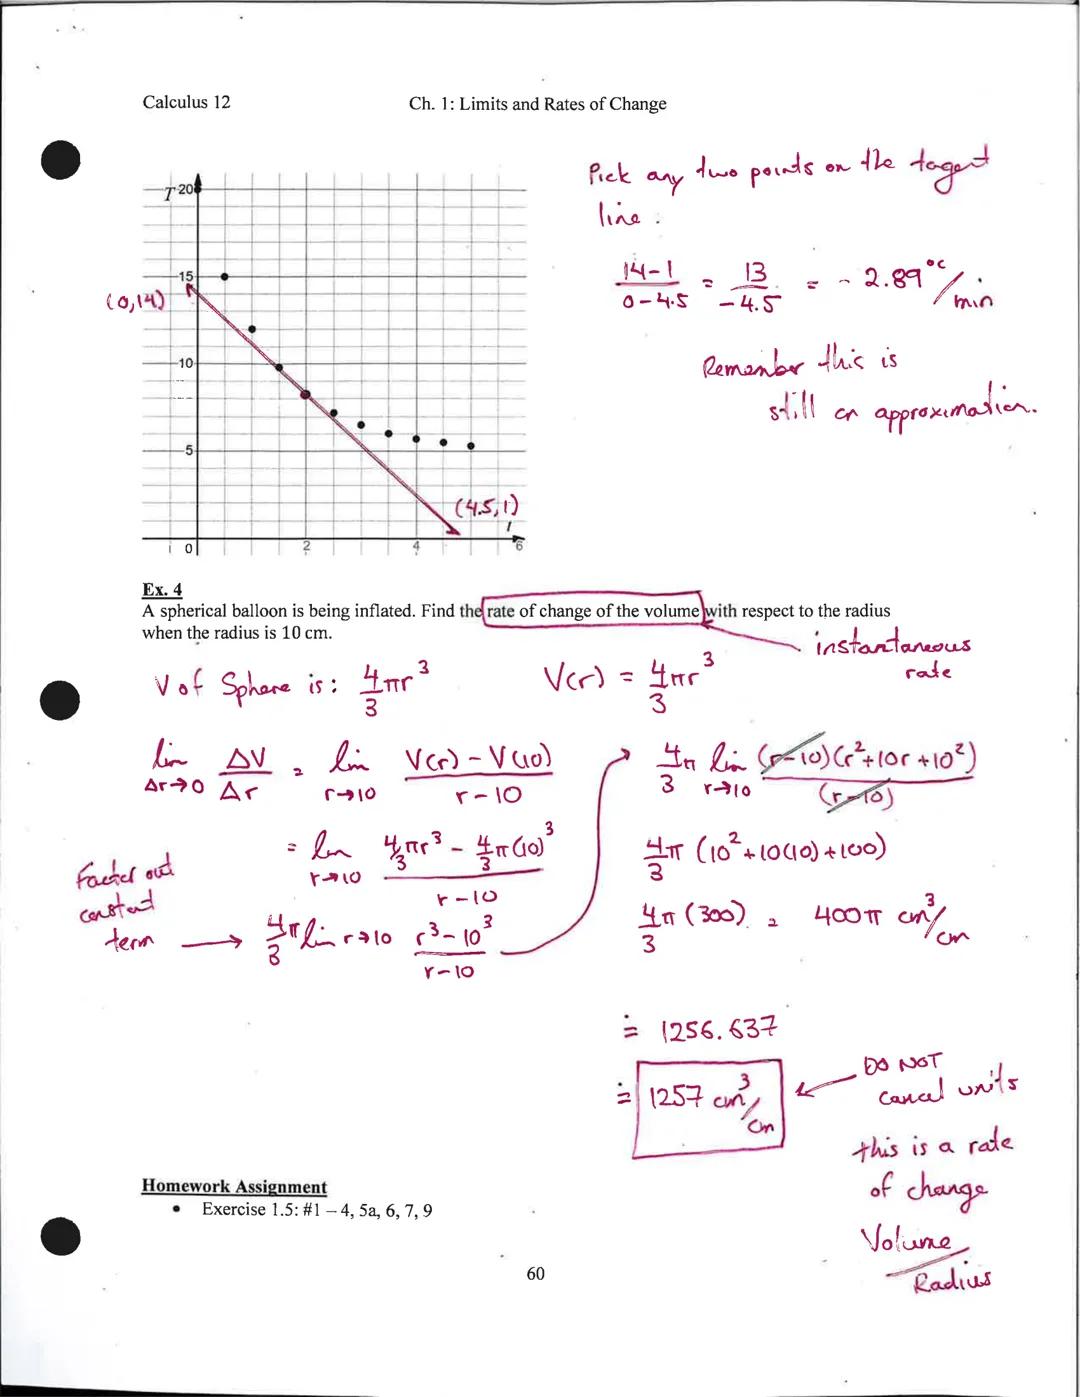 Calculus 12
Ch. 1: Limits and Rates of Change
Pick any two points on the tagent
line :
14-1 / 0-4.5 = 13 / -4.5 = -2.89 °C/min
Remember this is
still an approximation.
T 20
15
(0,14)
10
5
(4.5,1)
0 2 4 6
Ex. 4
A spherical balloon is being inflated. Find the rate of change of the volume with respect to the radius
when the radius is 10 cm.
instantaneous
rate
V of Sphere is: 4/3 πr³
V(r) = 4/3 πr³
lim Δr→0 ΔV/Δr = lim r→10 V(r) - V(10) / r - 10
= lim r→10 4/3 πr³ - 4/3 π(10)³ / r - 10
Factor out
constant
term → 4/3 π lim r→10 r³ - 10³ / r - 10
4/3 π lim r→10 (r-10)(r²+10r+10²) / (r-10)
4/3 π (10²+10(10)+100)
4/3 π (300) = 400π cm³/cm
≐ 1256.637
≐ 1257 cm³/cm
DO NOT
cancel units
this is a rate
of change
Volume / Radius
Homework Assignment
• Exercise 1.5: #1 – 4, 5a, 6, 7, 9
60